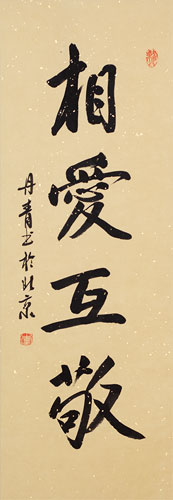 相愛互敬
丹青书於北京